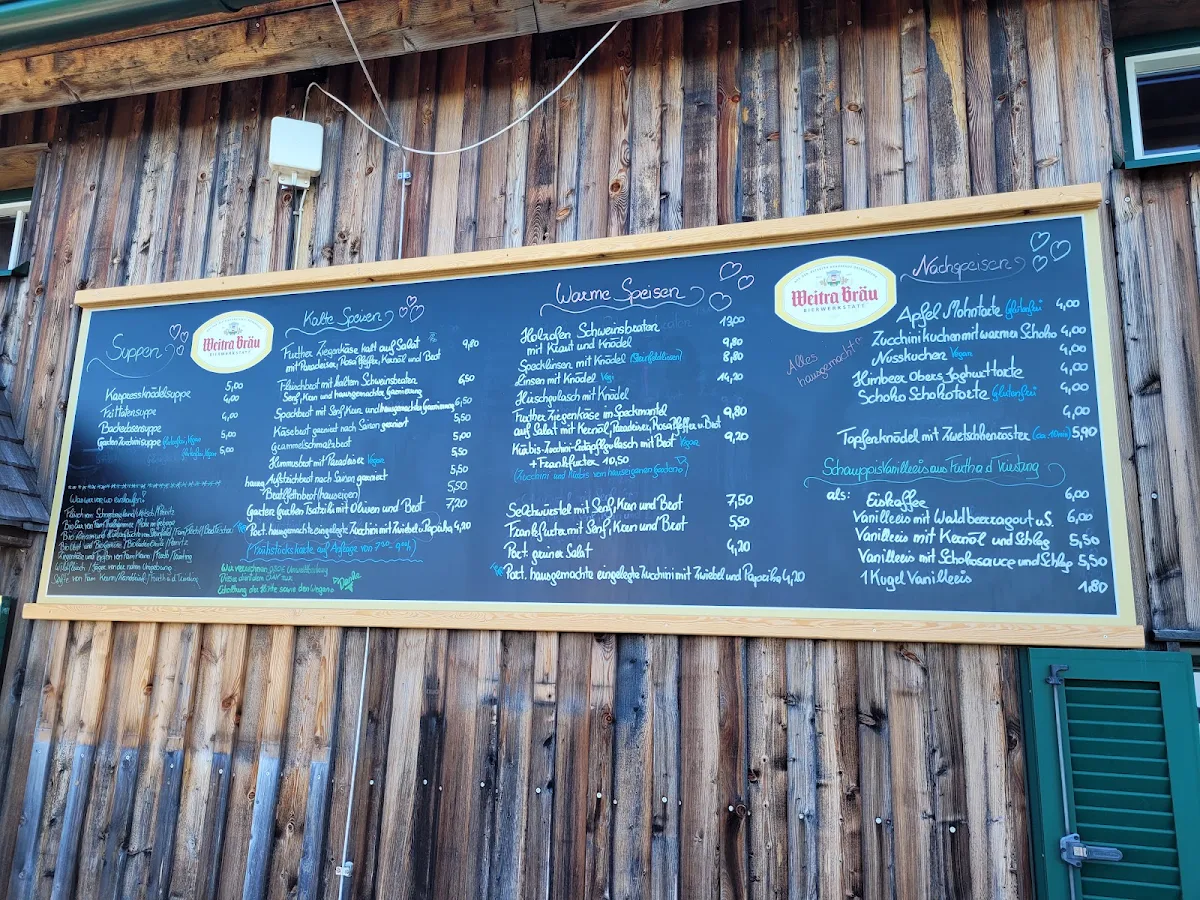 Suppen
Kaspressknödelsuppe 5,00
Frittatensuppe 4,00
Backerbsensuppe 4,00
Garten Zucchinisuppe Glutenfrei, Vegan 5,00
Glutenfrei, Vegan 5,00
Weitra Bräu
BIERWERKSTATT
Kalte Speisen
Further Ziegenkäse kalt auf Salat 9,80
mit Paradeiser, Rosa Pfeffer, Kernöl und Brot
Fleischbrot mit kaltem Schweinsbraten 6,50
Senf, Kren und hausgemachte Garnierung
Speckbrot mit Senf, Kren und hausgemachte Garnierung 6,50
Käsebrot garniert nach Saison garniert 5,50
Grammelschmalzbrot 5,00
Hummusbrot mit Paradeiser Vegan 5,50
hausg. Aufstrichbrot nach Saison garniert 5,50
Bratlfettnbrot (hauseigen) 5,50
Garten frisches Tsatsiki mit Oliven und Brot 7,20
Port. hausgemachte eingelegte Zucchini mit Zwiebel u Paprika 4,20
(Frühstückskarte auf Anfrage von 7:30
Warme Speisen
Holzofen Schweinsbraten 13,00
mit Kraut und Knödel
Specklinsen mit Knödel 9,80
Linsen mit Knödel Vegi 8,80
Hirschgulasch mit Knödel 14,20
Further Ziegenkäse im Speckmantel 9,80
auf Salat mit Kernöl, Paradeiser, Rosa Pfeffer u. Brot
Kürbis-Zucchini-Erdäpfelgulasch mit Brot Vegan 9,20
+ Frankfurter 10,50
(Zucchini und Kürbis von hauseigenem Garten)
Selchwürstel mit Senf, Kren und Brot 7,50
Frankfurter mit Senf, Kren und Brot 5,50
Port. grüner Salat 4,20
Port. hausgemachte eingelegte Zucchini mit Zwiebel und Paprika 4,20
Weitra Bräu
BIERWERKSTATT
Alles hausgemacht
Nachspeisen
Apfel Mohntorte Glutenfrei 4,00
Zucchinikuchen mit warmer Schoko 4,00
Nusskuchen Vegan 4,00
Himbeer Obers Joghurttorte 4,00
Schoko Schokotorte Glutenfrei 4,00
4,00
Topfenknödel mit Zwetschkenröster (ca. 10min) 5,90
als: Eiskaffee 6,00
Vanilleeis mit Waldbeerragout u.S. 6,00
Vanilleeis mit Kernöl und Schlag 5,50
Vanilleeis mit Schokosauce und Schlag 5,50
1 Kugel Vanilleeis 1,80